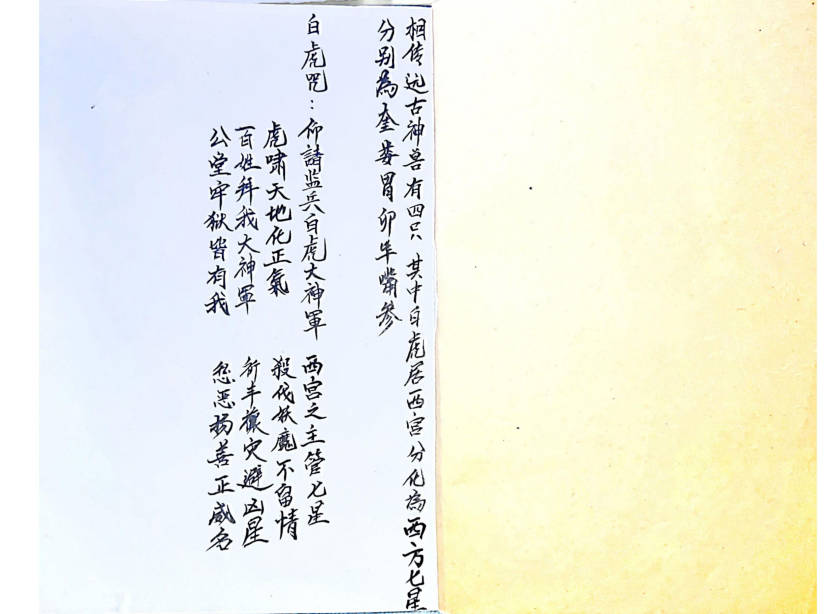 相传远古神兽有四只 其中白虎居西宫分化為西方七星
分别為奎娄胃卯毕嘴参
白虎咒：仰請监兵白虎大神軍 西宫之主管七星
虎嘯天地化正氣 殺伐妖魔不留情
百姓拜我大神軍 祈丰禳灾避凶星
公堂牢狱皆有我 惩恶揚善正威名